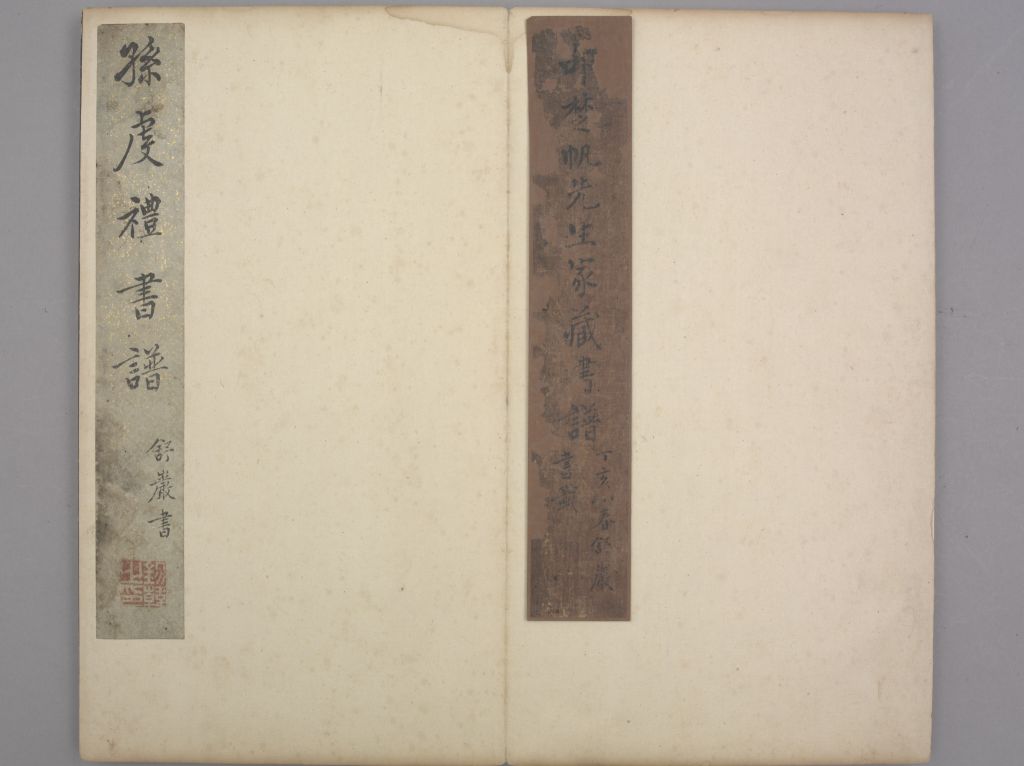 楚帆先生家藏書譜
丁亥小春舒巖
書籤
孫虔禮書譜
舒巖書